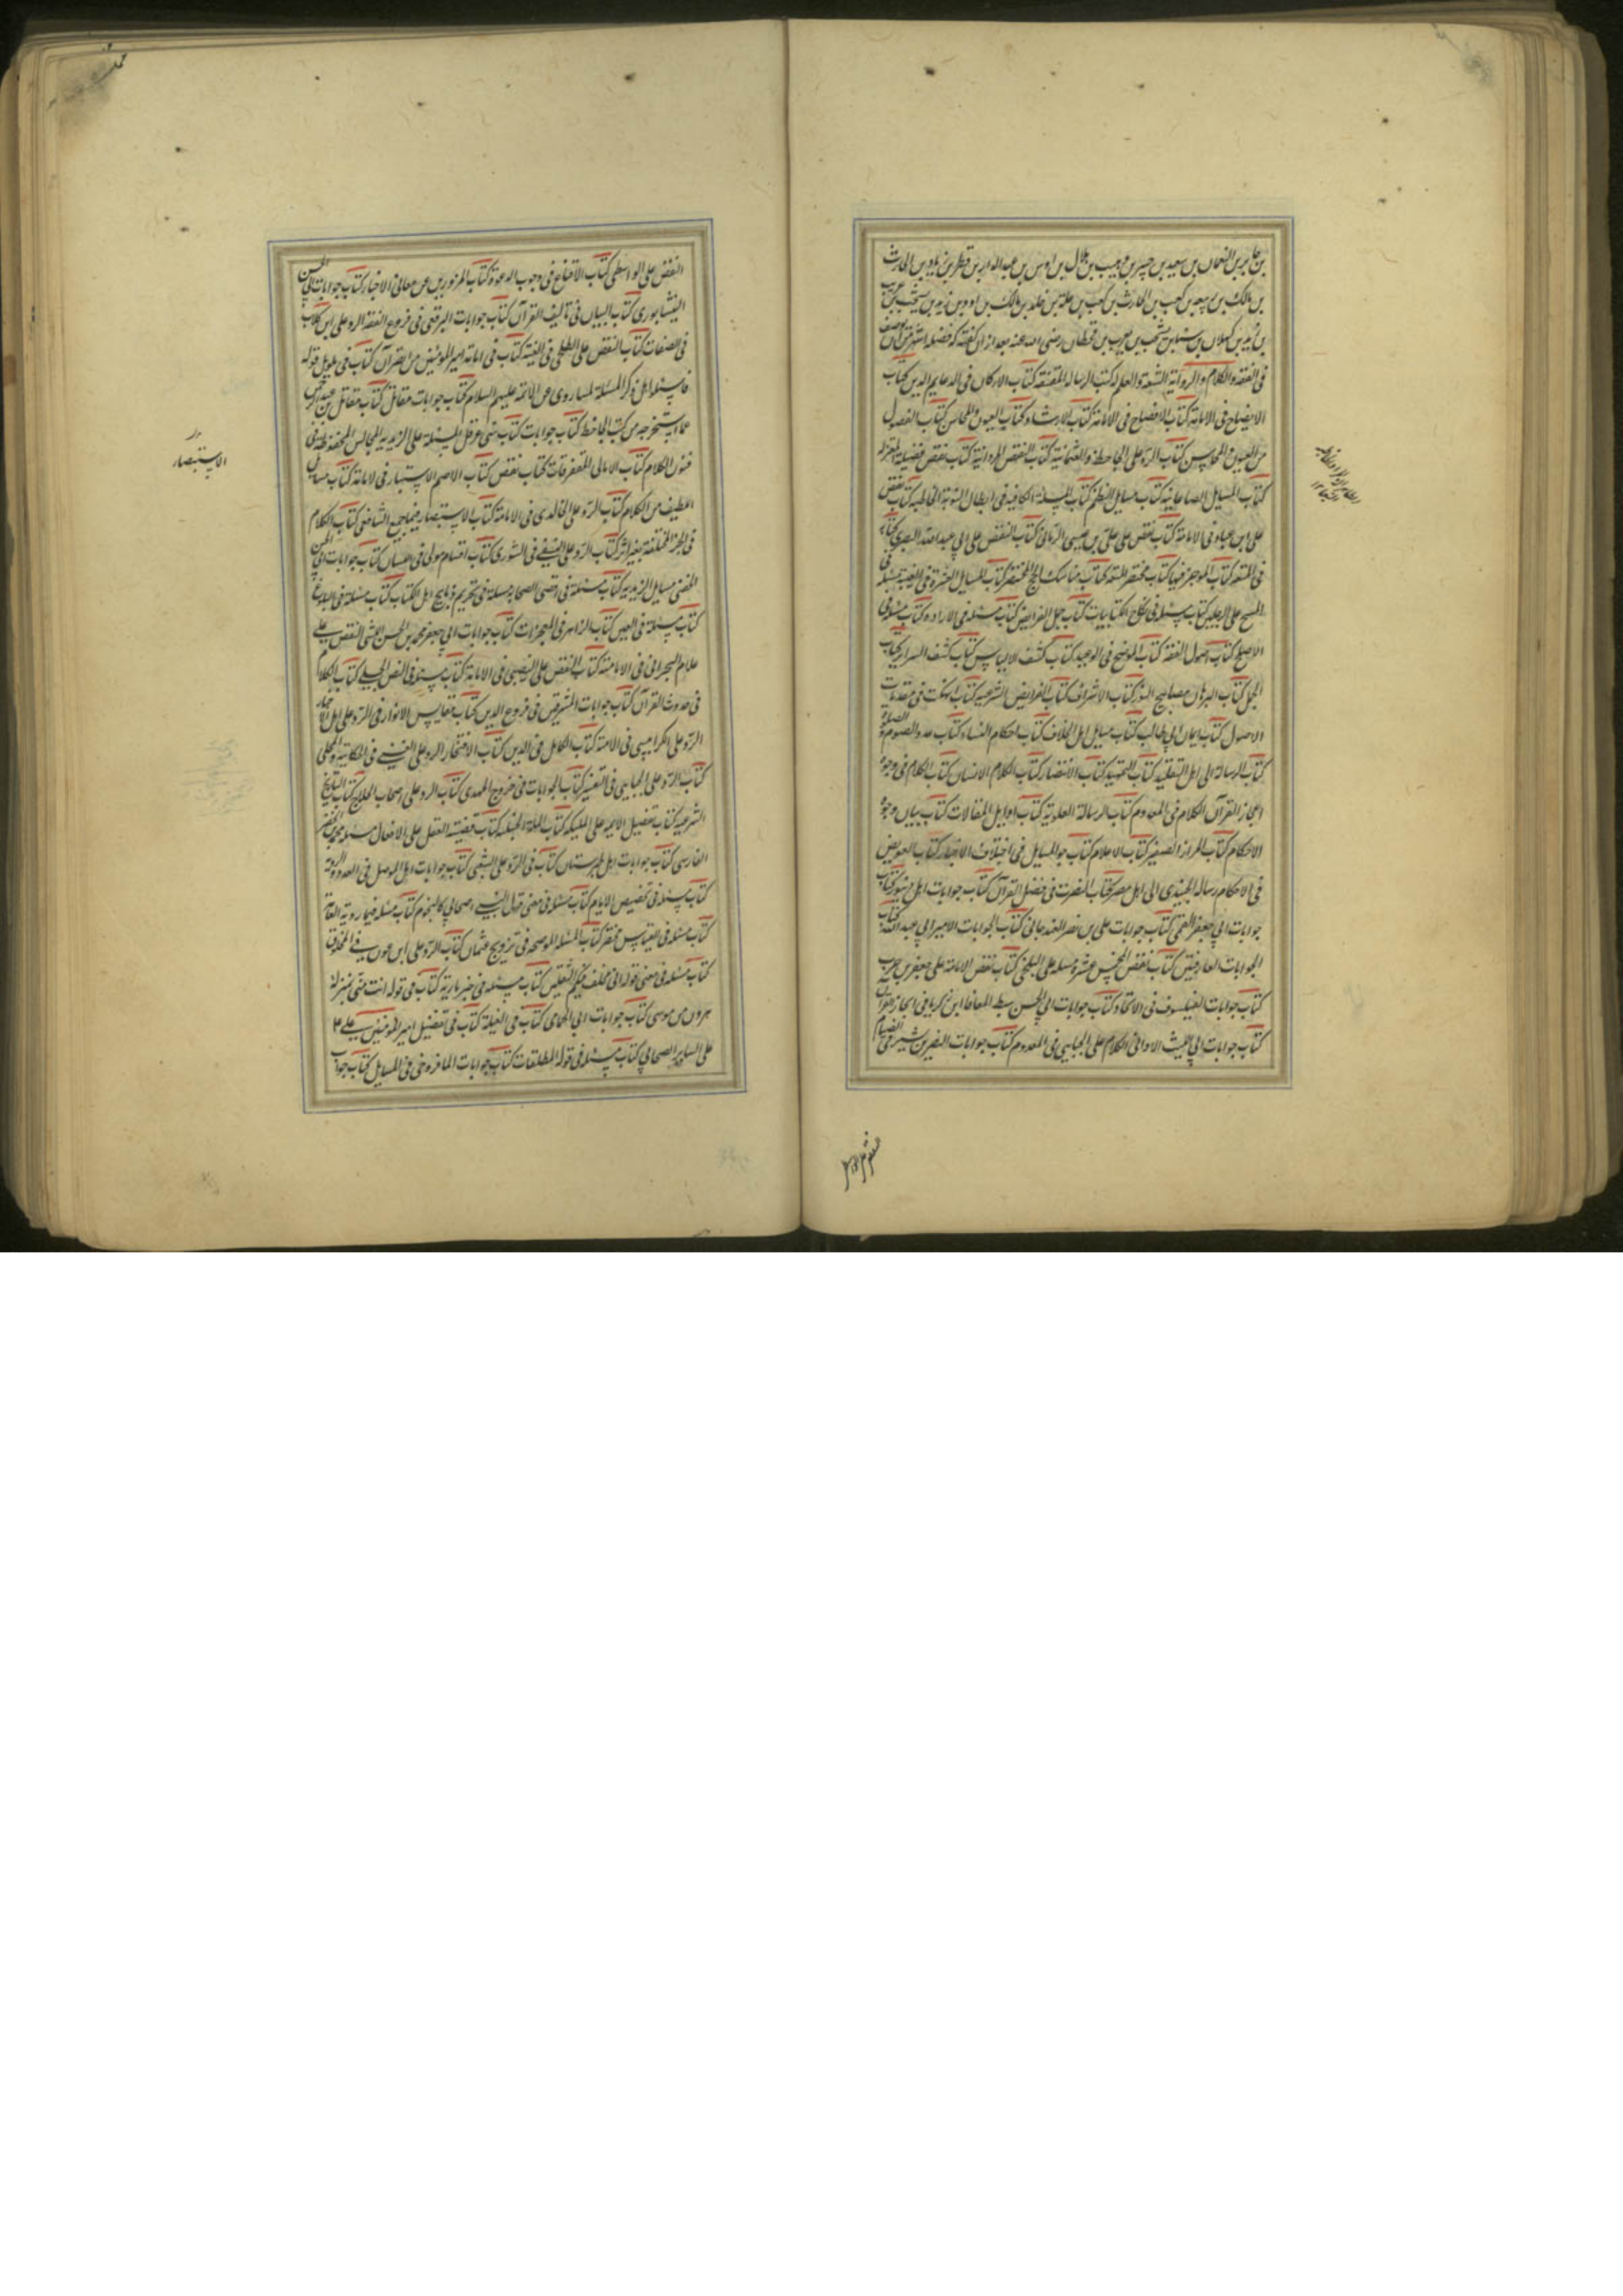 بن جابر بن النعمان بن سعید بن جبیر بن وهیب بن هلال بن اوس بن عبد الدار بن قطر بن زیاد بن الحارث
بن مالک بن ربیعه بن کعب بن الحارث بن کعب بن علة بن خلد بن مالک بن اود بن زید بن یشجب بن عریب
بن زید بن کهلان بن سبا بن یشجب بن یعرب بن قحطان رضی الله عنه بعد از ان گفته که فضله اشهر من ان یوصف
فی الفقه والکلام والروایة الثقة والعلم له کتب الرساله المقنعه کتاب الارکان فی الدعایم الدین کتاب
الایضاح فی الامامة کتاب الافصاح فی الامامة کتاب الارشاد و کتاب العیون والمحاسن کتاب الفصول
من العیون والمحاسن کتاب الرد علی الجاحظ والعثمانیة کتاب النقض المروانیة کتاب نقض فضیلة المعتزله
کتاب المسایل الصاغانیه کتاب مسایل النظم کتاب المسئلة الکافیه فی ابطال التوبة الخاطیه کتاب نقض
علی ابن عباد فی الامامة کتاب نقض علی علی بن عیسی الرمانی کتاب النقض علی ابی عبد الله البصری کتابه
فی المتعه کتاب الموجز فیها کتاب مختصر المتعه کتاب مناسک الحج المختصر کتاب المسایل العشرة فی الغیبه مسئله فی
المسح علی الرجلین کتاب مسئله فی نکاح الکتابیات کتاب جمل الفرایض کتاب مسئله فی الاراده کتاب مسئله فی
الاصلح کتاب اصول الفقه کتاب الموضح فی الوعید کتاب کشف الالباس کتاب کشف السرایر کتاب
الجمل کتاب البرهان مصابیح النور کتاب الاشراف کتاب الفرایض الشرعیه کتاب النکت فی مقدمات
الاصول کتاب ایمان ابی طالب کتاب مسایل اهل الخلاف کتاب احکام النساء کتاب عدد الصوم و الصلوة
کتاب الرسالة الی اهل التقلید کتاب التمهید کتاب الانتصار کتاب الکلام الانسان کتاب الکلام فی وجوه
اعجاز القرآن الکلام فی المعدوم کتاب الرسالة العلویة کتاب اوایل المقالات کتاب بیان وجوه
الاحکام کتاب المزار الصغیر کتاب الاعلام کتاب جواب المسایل فی اختلاف الاخبار کتاب العویص
فی الاحکام رسالة الجنیدی الی اهل مصر کتاب النصرت فی فضل القرآن کتاب جوابات اهل دینور کتاب
جوابات ابی جعفر القمی کتاب جوابات علی بن نصر العندجانی کتاب الجوابات الامیر ابی عبد الله کتاب
الجوابات الفارقیین کتاب نقض الخمس عشرة مسئله علی البلخی کتاب نقض الامامة علی جعفر بن حرب
کتاب جوابات الفیلسوف فی الاتحاد کتاب جوابات ابی الحسن سبط المعافا ابن زکریا فی اعجاز القرآن
کتاب جوابات ابی اللیث الاوانی الکلام علی الجبایی فی المعدوم کتاب جوابات النصر بن بشیر فی الصیام
النقض علی الواسطی
النقض علی الواسطی کتاب الاقناع فی وجوب الدعوة کتاب المزورین عن معانی الاخبار کتاب جوابات ابی الحسن
النیشابوری کتاب البیان فی تالیف القرآن کتاب جوابات البرقعی فی فروع الفقه الرد علی ابن کلاب
فی الصفات کتاب النقض علی الطلحی فی الغیبة کتاب فی امامة امیر المؤمنین من القرآن کتاب فی تاویل قوله
فاسئلوا اهل ذکر المسئلة لما روی عن الائمة علیهم السلام کتاب جوابات مقاتل کتاب مقاتل بن عبد الرحمن
عما استخرجه من کتب الجاحظ کتاب جوابات کتاب بنی عرقل المسئلة علی الزیدیه المجالس المحفوظة فی
فنون الکلام کتاب الامالی المتفرقات کتاب نقض کتاب الاصم الاستبار فی الامامة کتاب مسایل
اللطیف من الکلام کتاب الرد علی الخالدی فی الامامة کتاب الاستبصار فیما جمع الشافعی کتاب الکلام
فی الخبر المختلقة بغیر اثر کتاب الرد علی العتیقی فی الشوری کتاب اقسام مولی فی اللسان کتاب جوابات ابی الحسن
الحضینی مسایل الزیدیه کتاب مسئلة فی اقضی الصحابه مسئلة فی تحریم ذبایح اهل الکتاب کتاب مسئلة فی البلوغ
کتاب مسئلة فی العین کتاب الزاهر فی المعجزات کتاب جوابات ابی جعفر محمد بن الحسن اللیثی النقض علی
غلام البحرانی فی الامامة کتاب النقض علی النصیبی فی الامامة کتاب مسئله فی النص الجلی کتاب الکلام
فی حدوث القرآن کتاب جوابات المشرقین فی فروع الدین کتاب مقابیس الانوار فی الرد علی اهل الاخبار
الرد علی الکرابیسی فی الامامة کتاب الکامل فی الدین کتاب الافتخار الرد علی العتیقی فی الحکایة والمحکی
کتاب الرد علی الجبایی فی التفسیر کتاب الجوابات فی خروج المهدی کتاب الرد علی اصحاب الحلاج کتاب التاریخ
الشرعیه کتاب تفضیل الایمه علی الملیکه کتاب المسئلة الحنبلیه کتاب قضیة العقل علی الافعال مسئله محمد بن الخضر
الفارسی کتاب جوابات اهل طبرستان کتاب فی الرد علی الشعبی کتاب جوابات اهل الموصل فی العدد والرویة
کتاب مسئله فی تخصیص الایام کتاب مسئله فی معنی قول النبی اصحابی کالنجوم کتاب مسئله فیما روته العامة
کتاب مسئله فی القیاس مختصر کتاب المسئله الموضحه فی تزویج عثمان کتاب الرد علی ابن عون فی المخلوق
کتاب مسئله فی معنی قوله انی مخلف فیکم الثقلین کتاب مسئله فی خبر ماریة کتاب فی قوله انت منی بمنزلة
هرون من موسی کتاب جوابات ابن الحمامی کتاب فی الغیلة کتاب فی تفضیل امیر المومنین علی ع
علی السایر الصحابی کتاب مسئله فی قوله المطلقات کتاب جوابات المافروخی فی المسایل کتاب جواب
الاستبصار